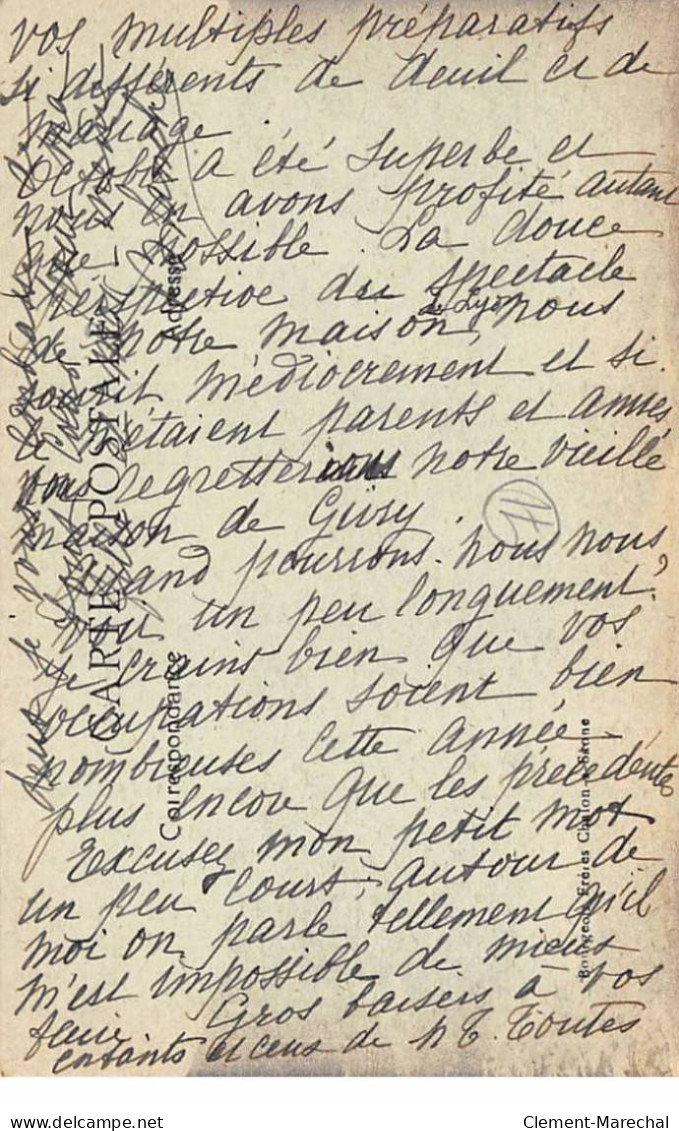 vos multiples préparatifs
si différents de deuil et de
mariage.
Octobre a été superbe et
nous en avons profité autant
que possible. La douce
perspective du spectacle
de Lyon
de notre maison, nous
sourit médiocrement et si
le n'étaient parents et amies
nous regretterions notre vieille
maison de Givry.
Quand pourrons-nous nous
voir un peu longuement?
Je crains bien que vos
occupations soient bien
nombreuses cette année
plus encore que les précédentes
Excusez mon petit mot
un peu court, autour de
moi on parle tellement qu'il
m'est impossible de mieux
faire. Gros baisers à vos
enfants et ceux de n T. Toutes
deux je vous
CARTE POSTALE
Correspondance
Adresse
Bourgeois Frères Chalon-s-Saone
delcampe.net
Clement-Marechal